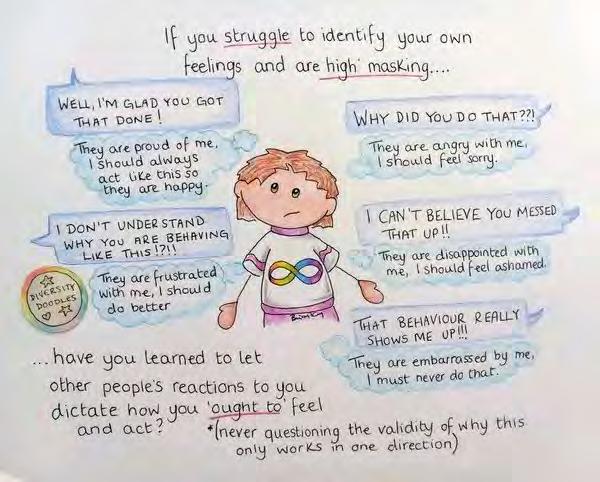 If you struggle to identify your own
feelings and are high masking....
WELL, I'M GLAD YOU GOT
THAT DONE!
They are proud of me,
I should always
act like this so
they are happy.
WHY DID YOU DO THAT??!
They are angry with me,
I should feel sorry.
I DON'T UNDERSTAND
WHY YOU ARE BEHAVING
LIKE THIS!?!!
They are frustrated
with me, I should
do better
I CAN'T BELIEVE YOU MESSED
THAT UP!!
They are disappointed with
me, I should feel ashamed.
DIVERSITY
DOODLES
THAT BEHAVIOUR REALLY
SHOWS ME UP!!!
They are embarrassed by me,
I must never do that.
...have you learned to let
other people's reactions to you
dictate how you 'ought to' feel
and act?
*(never questioning the validity of why this
only works in one direction)